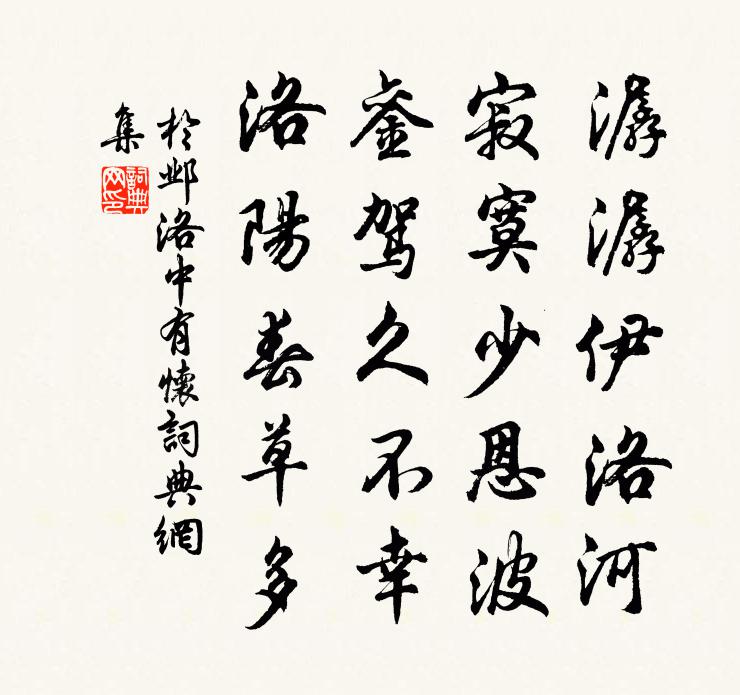 潺潺伊洛河
寂寞少恩波
銮駕久不幸
洛陽春草多
於邺洛中有懷詞典網
集
詞典网印